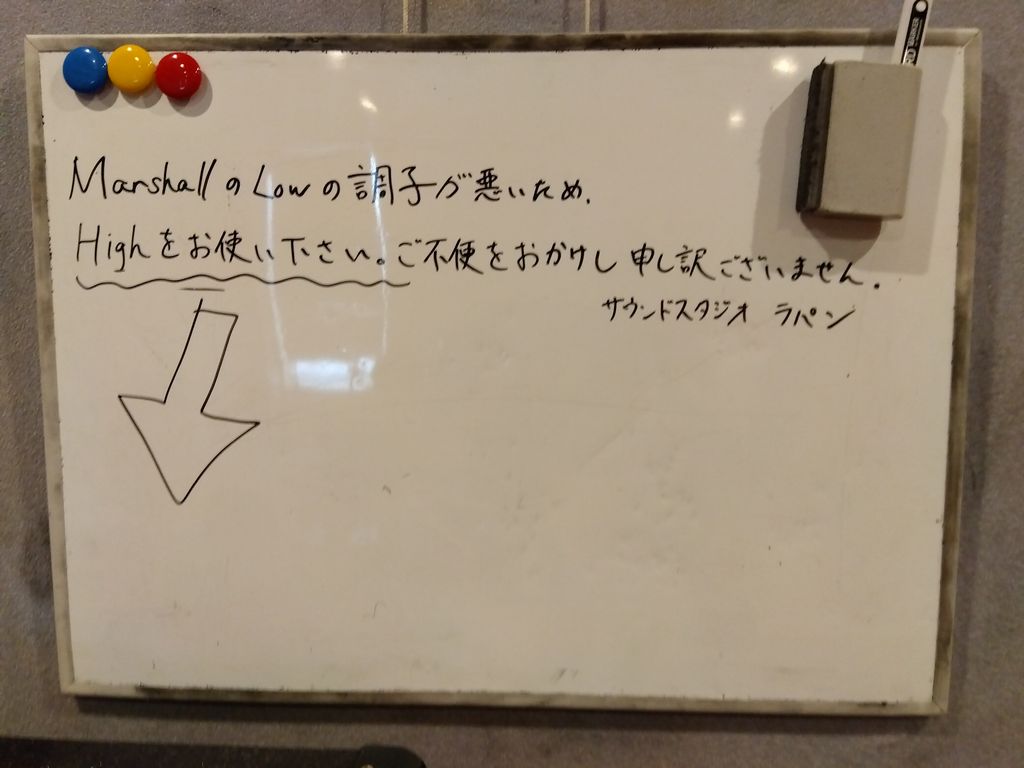 MarshallのLowの調子が悪いため.
Highをお使い下さい。ご不便をおかけし申し訳ございません.
サウンドスタジオ ラパン